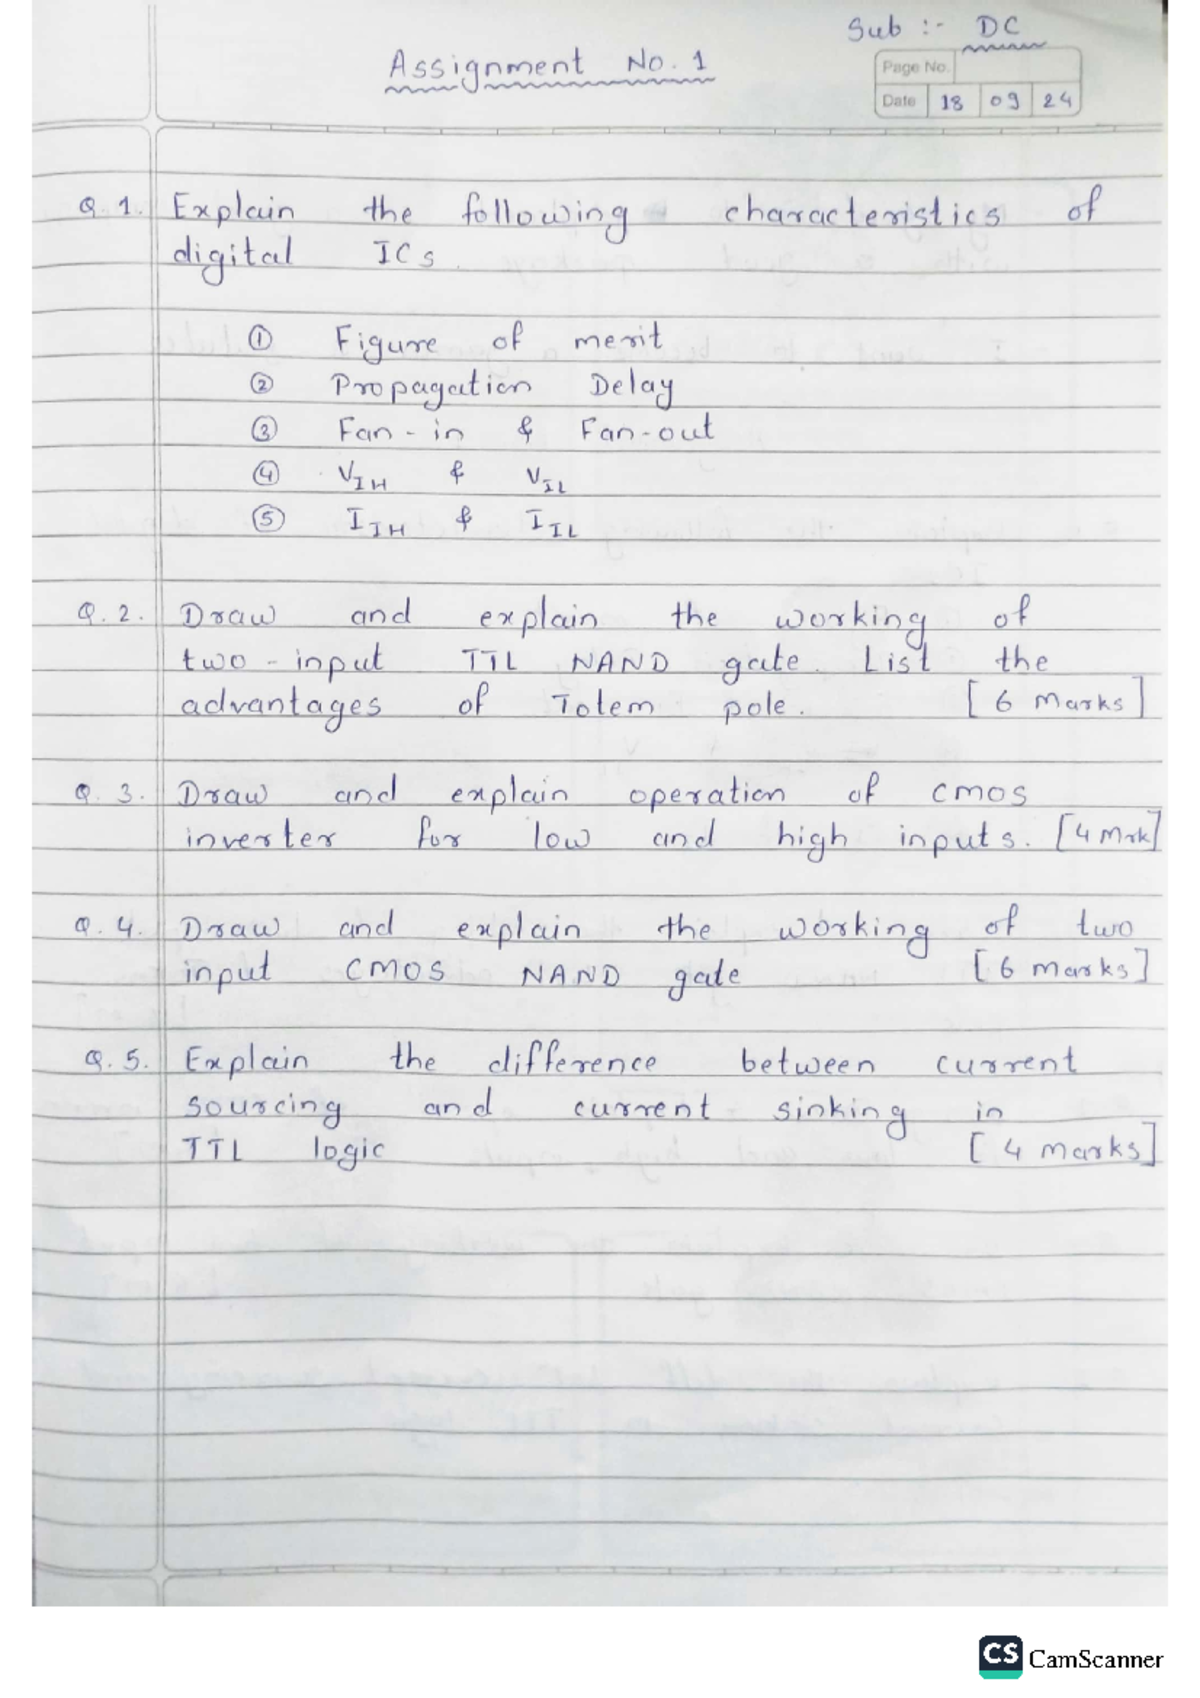 Sub :- DC
Assignment No. 1
Page No.
Date 18 09 24
Q. 1. Explain the following characteristics of
digital ICs.
① Figure of merit
② Propagation Delay
③ Fan-in & Fan-out
④ VIH & VIL
⑤ IIH & IIL
Q. 2. Draw and explain the working of
two-input TTL NAND gate. List the
advantages of Totem pole. [6 Marks]
Q. 3. Draw and explain operation of CMOS
inverter for low and high inputs. [4 Mrk]
Q. 4. Draw and explain the working of two
input CMOS NAND gate [6 marks]
Q. 5. Explain the difference between current
sourcing and current sinking in
TTL logic [4 marks]
CS CamScanner